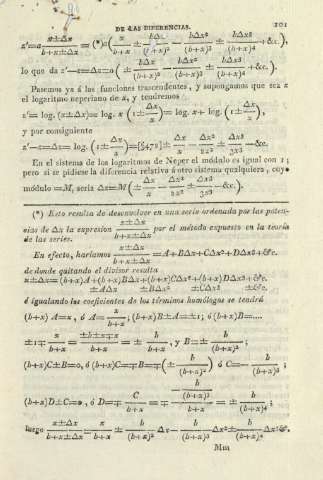 DE LAS DIFERENCIAS. 101
z'=a (x±Δx)/(b+x±Δx) = (*)a( x/(b+x) ± bΔx/(b+x)² − bΔx²/(b+x)³ ± bΔx³/(b+x)⁴ +&c.),
lo que da z'−z=Δz=a( ± bΔx/(b+x)² − bΔx²/(b+x)³ ± bΔx³/(b+x)⁴ +&c.).
Pasemos ya á las funciones trascendentes, y supongamos que sea z
el logaritmo neperiano de x, y tendremos
z'= log. (x±Δx)= log. x (1± Δx/x)= log. x+ log. (1± Δx/x),
y por consiguiente
z'−z=Δz= log. (1± Δx/x)=[§472]± Δx/x − Δx²/2x² ± Δx³/3x³ −&c.
En el sistema de los logaritmos de Neper el módulo es igual con 1;
pero si se pidiese la diferencia relativa á otro sistema qualquiera, cuyo
módulo =M, sería Δz=M( ± Δx/x − Δx²/2x² ± Δx³/3x³ −&c.).
(*) Esto resulta de desenvolver en una serie ordenada por las poten-
cias de Δx la expresion (x±Δx)/(b+x±Δx) por el método expuesto en la teoría
de las series.
En efecto, hariamos (x±Δx)/(b+x±Δx) =A+BΔx+CΔx²+DΔx³+&c.
de donde quitando el divisor resulta
x±Δx=(b+x)A+(b+x)BΔx+(b+x)CΔx²+(b+x)DΔx³+&c.
±AΔx ±BΔx² ±CΔx³ ±&c.
é igualando los coeficientes de los términos homólogos se tendrá
(b+x) A=x, ó A= x/(b+x); (b+x)B±A=±1; ó (b+x)B=....
±1∓ x/(b+x) = (±b±x∓x)/(b+x) = ± b/(b+x), y B=± b/(b+x)²;
(b+x)C±B=0, ó (b+x)C=∓B=∓(± b/(b+x)²) ó C=− b/(b+x)³;
(b+x)D±C=0, ó D=∓ C/(b+x) = ∓ (− b/(b+x)³)/(b+x) = ± b/(b+x)⁴;
luego (x±Δx)/(b+x±Δx) = x/(b+x) ± b/(b+x)² Δx− b/(b+x)³ Δx²± b/(b+x)⁴ Δx³&c.
Mm